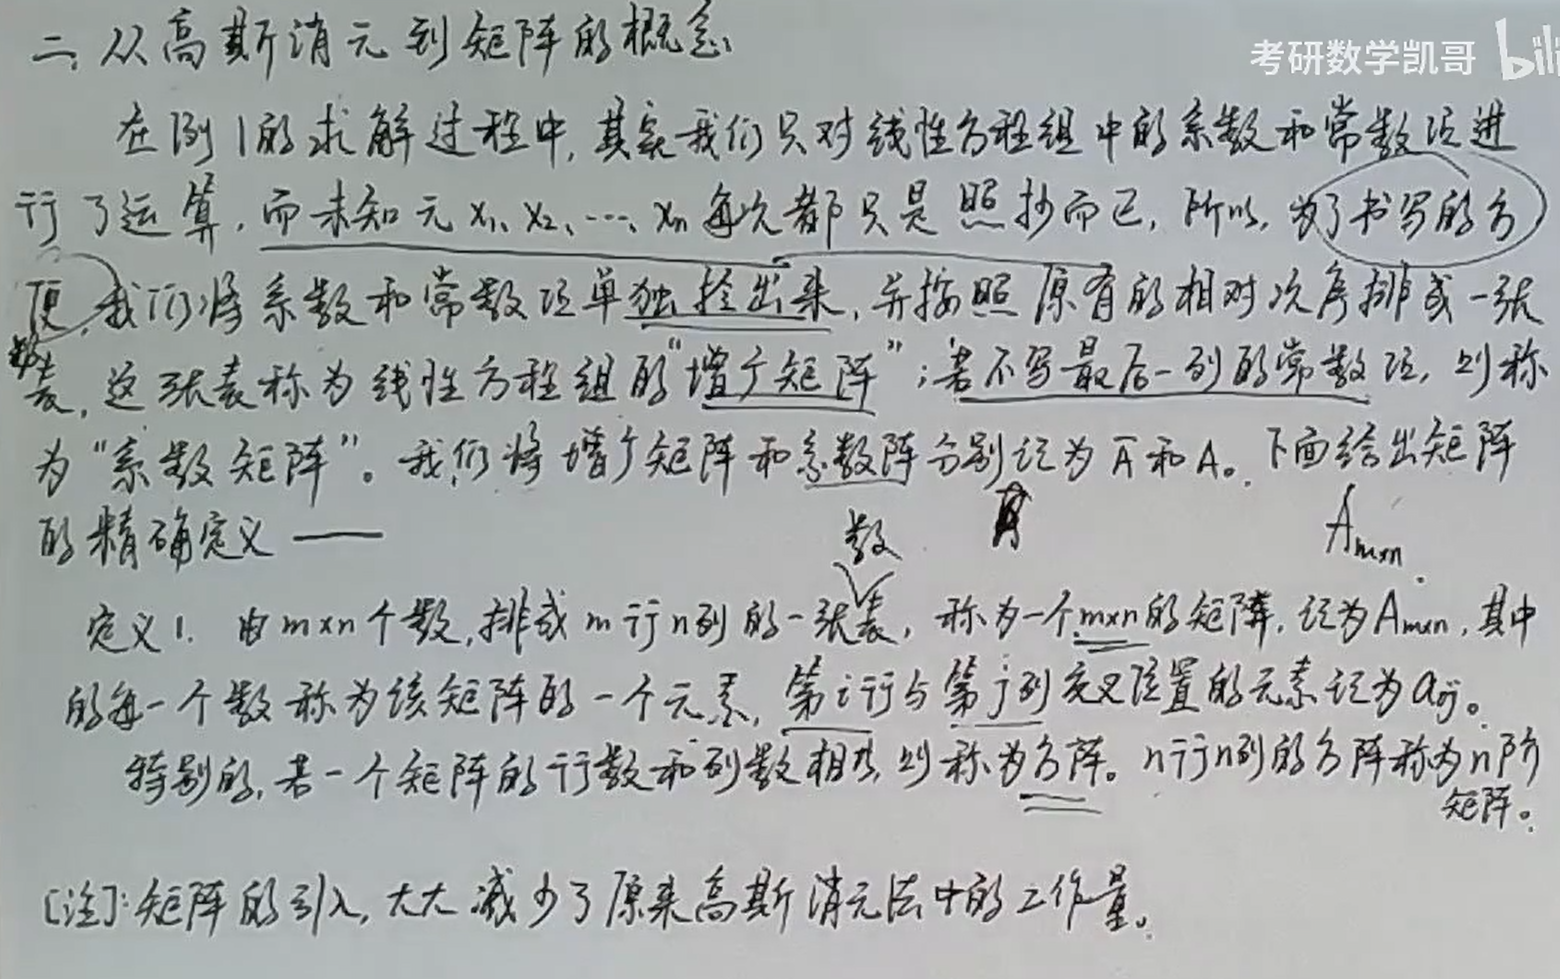 二、从高斯消元到矩阵的概念
考研数学凯哥 bili
在例1的求解过程中,其实我们只对线性方程组中的系数和常数项进
行了运算,而未知元x₁、x₂、…、xₙ每次都只是照抄而已,所以,为了书写的方
便,我们将系数和常数项单独拴出来,并按照原有的相对次序排成一张
数
表,这张表称为线性方程组的“增广矩阵”;若不写最后一列的常数项,则称
为“系数矩阵”。我们将增广矩阵和系数阵分别记为Ā和A。下面给出矩阵
的精确定义——
数
Aₘₓₙ
定义1. 由m×n个数,排成m行n列的一张表,称为一个m×n的矩阵,记为Aₘₓₙ,其中
的每一个数称为该矩阵的一个元素,第i行与第j列交叉位置的元素记为aᵢⱼ。
特别的,若一个矩阵的行数和列数相等,则称为方阵。n行n列的方阵称为n阶
矩阵。
[注]:矩阵的引入,大大减少了原来高斯消元法中的工作量。